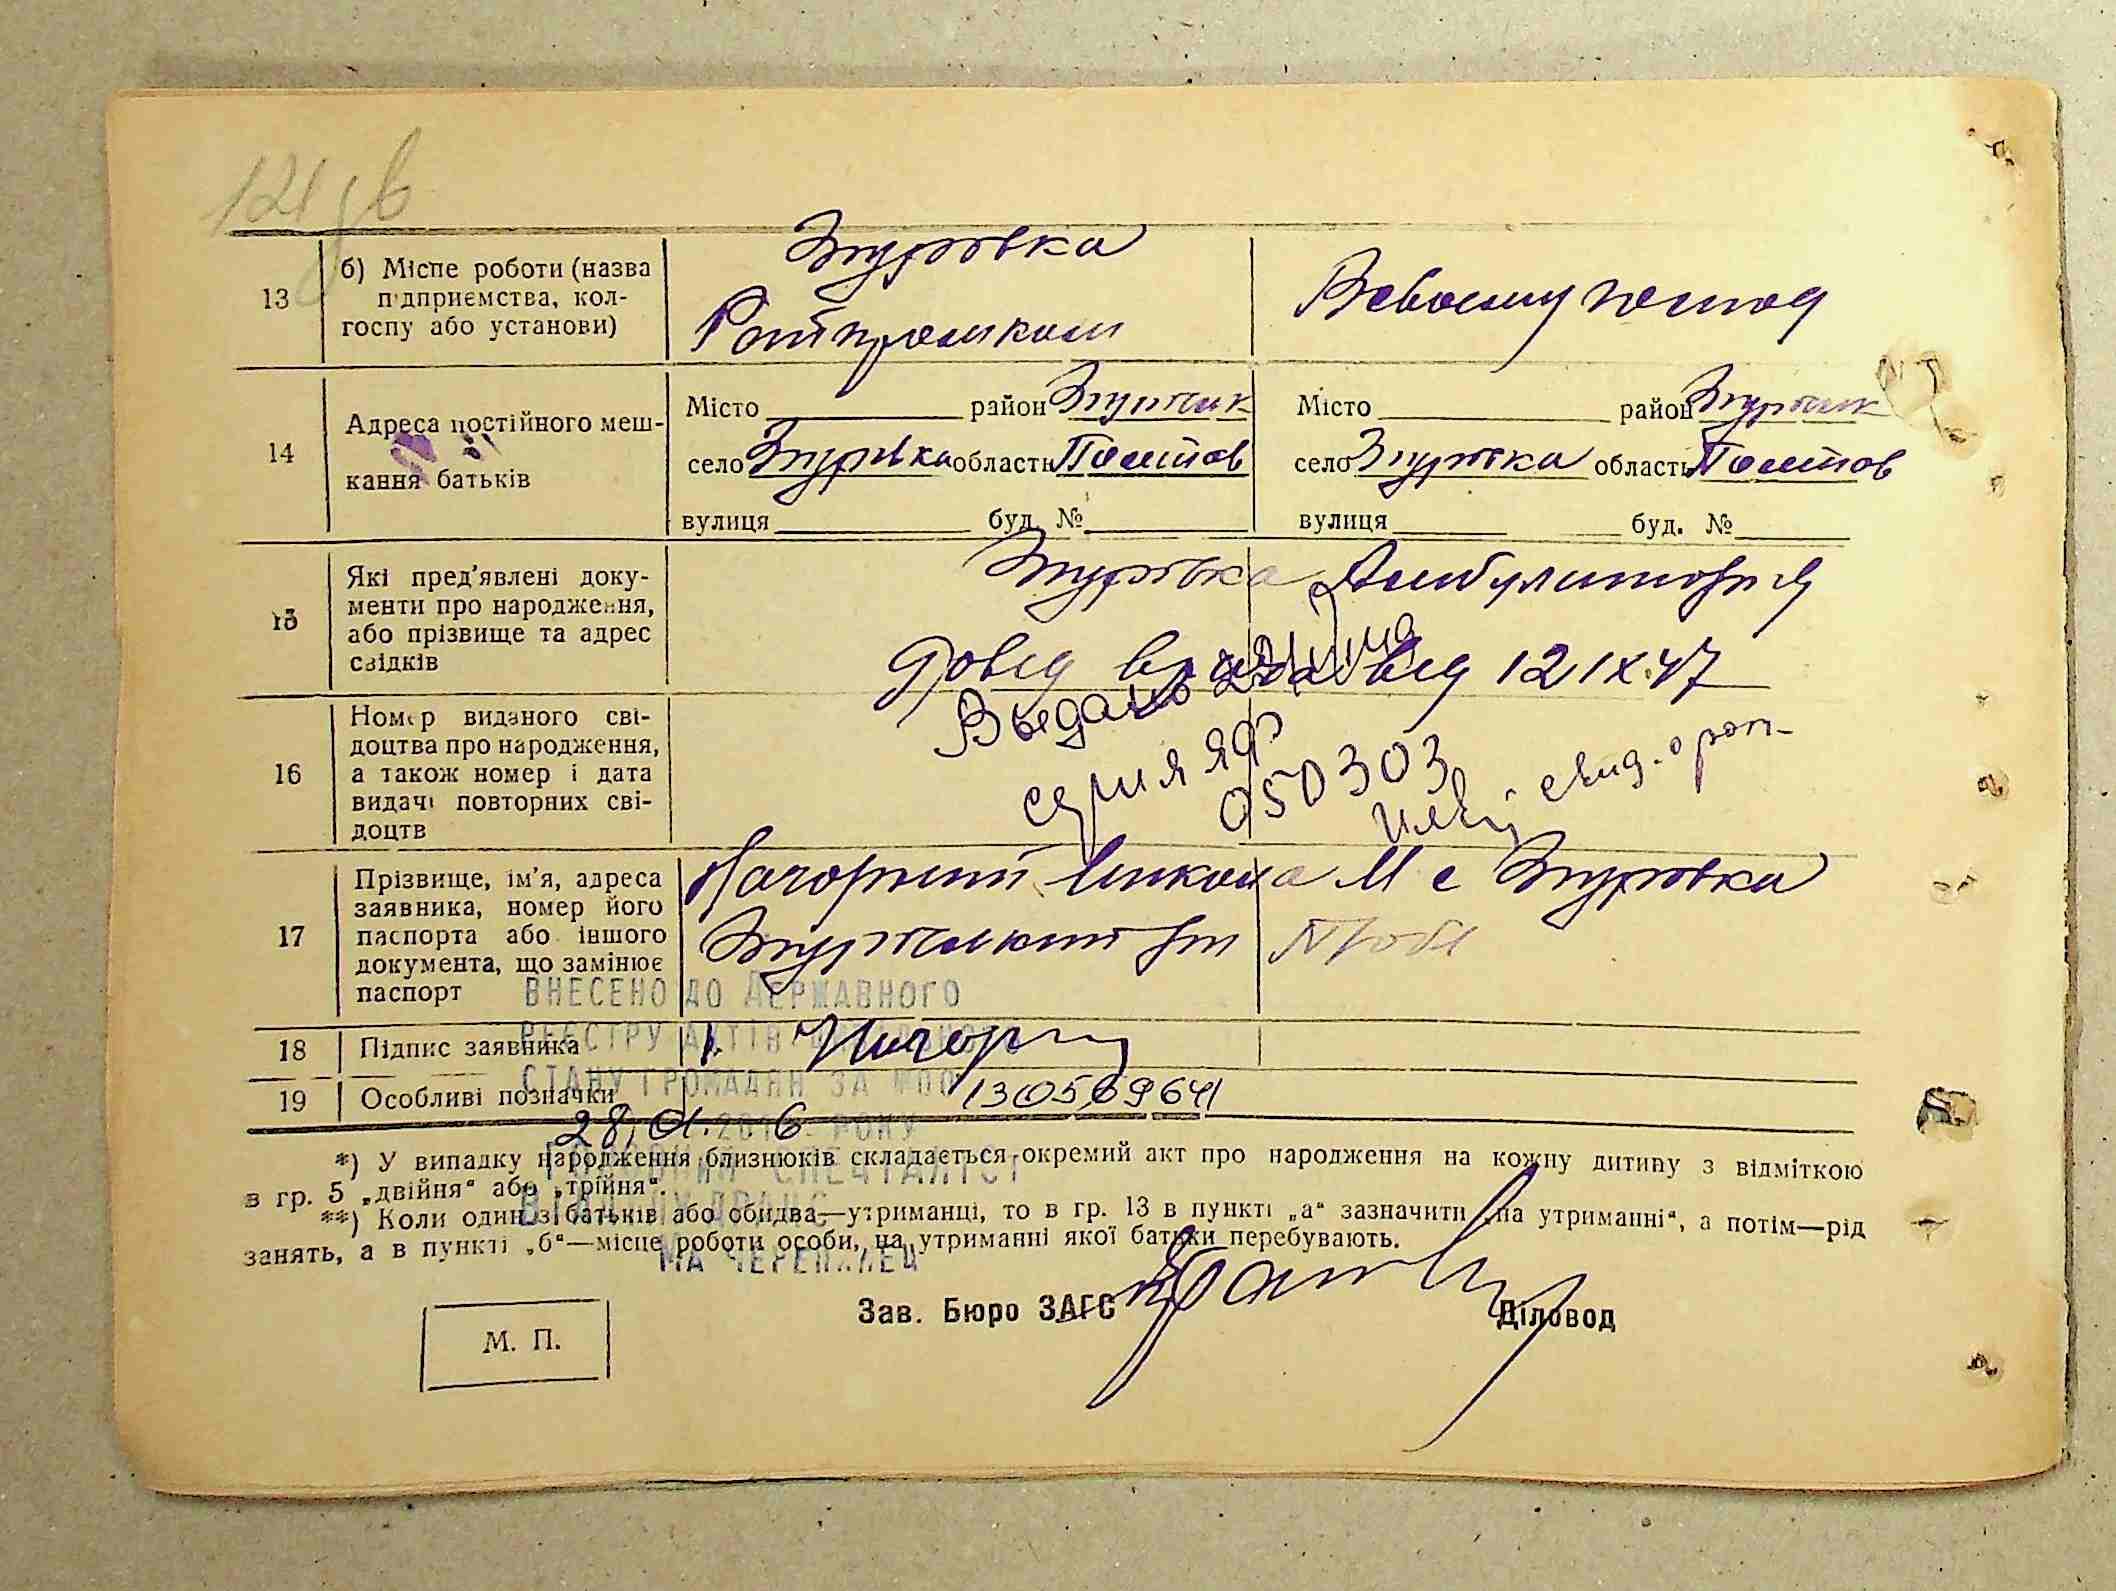 121
13
б) Місце роботи (назва
підприємства, кол-
госпу або установи)
Згурівка
Райпромком
В своєму господ
14
Адреса постійного меш-
кання батьків
Місто район Згурівськ
село Згурівка область Полтав
вулиця буд. №
Місто район Згурівськ
село Згурівка область Полтав
вулиця буд. №
15
Які пред'явлені доку-
менти про народження,
або прізвище та адрес
свідків
Згурівка Амбулаторія
Довід від 12 IX 47
16
Номер виданого сві-
доцтва про народження,
а також номер і дата
видачі повторних сві-
доцтв
Выдано
серия ЯФ
050303
свид. о рож-
17
Прізвище, ім'я, адреса
заявника, номер його
паспорта або іншого
документа, що замінює
паспорт
Нагорний Микола М с Згурівка
Згурівський рн
18
Підпис заявника
Нагорн
19
Особливі позначки
ВНЕСЕНО ДО ДЕРЖАВНОГО
РЕЄСТРУ АКТІВ ЦИВІЛЬНОГО
СТАНУ ГРОМАДЯН ЗА №00
130569641
28.01.2016 РОКУ
ГОЛОВНИЙ СПЕЦІАЛІСТ
ВІДДІЛУ ДРАЦС
*) У випадку народження близнюків складається окремий акт про народження на кожну дитину з відміткою
в гр. 5 „двійня“ або „трійня“.
**) Коли один з батьків або обидва—утриманці, то в гр. 13 в пункті „а“ зазначити „на утриманні“, а потім—рід
занять, а в пункті „б“—місце роботи особи, на утриманні якої батьки перебувають.
Зав. Бюро ЗАГС
Діловод
М. П.